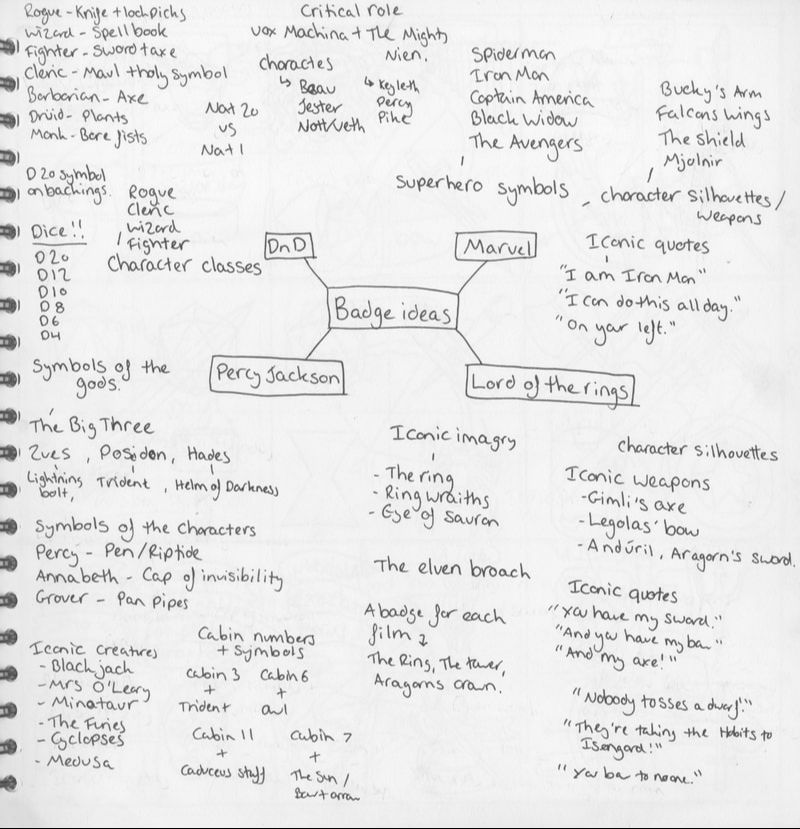 Rogue - Knife + lochpichs
Wizard - Spell book
Fighter - Sword + axe
Cleric - Maul + holy symbol
Barbarian - Axe
Druid - Plants
Monk - Bare fists
Nat 20
vs
Nat 1
Critical role
Vox Machina + The Mighty
Nien.
charactes
↳ Beau
Jester
Nott/Veth
↳ Keyleth
Percy
Pike
D20 symbol
on bachings.
Rogue
Cleric
Wizard
Fighter
Character classes
Dice!!
D20
D12
D10
D8
D6
D4
DnD
Spiderman
Iron Man
Captain America
Black Widow
The Avengers
Superhero symbols
Bucky's Arm
Falcons Wings
The Shield
Mjolnir
character silhouettes/
weapons
Marvel
Iconic quotes
"I am Iron Man"
"I can do this all day."
"On your left."
Badge ideas
Percy Jackson
Lord of the rings
Symbols of the
gods.
The Big Three
Zues, Posidon, Hades
Lightning
bolt,
Trident, Helm of Darkness
Symbols of the Characters
Percy - Pen/Riptide
Annabeth - Cap of invisibility
Grover - Pan Pipes
Iconic creatures
- Blackjack
- Mrs O'Leary
- Minataur
- The Furies
- Cyclopses
- Medusa
Cabin numbers
+ Symbols
Cabin 3
+
Trident
Cabin 6
+
owl
Cabin 11
+
Caduceus staff
Cabin 7
+
The Sun /
Bow + arrow
Iconic imagry
- The ring
- Ring wraiths
- Eye of Sauron
The elven broach
A badge for each
film ↴
The Ring, The tower,
Aragorns crown.
character silhouettes
Iconic weapons
- Gimli's axe
- Legolas' bow
- Andúril, Aragorn's sword.
Iconic quotes
"You have my sword."
"And you have my bow"
"And my axe!"
"Nobody tosses a dwarf."
"They're taking the Hobits to
Isengard!"
"You bow to no one."